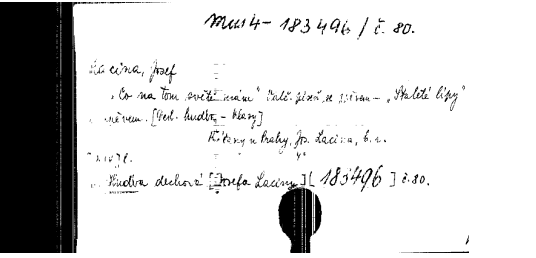 Mus 4 - 183496 / č. 80.
Lacina, Josef
"Co na tom světě mám" Valč. píseň se zpěvem - "Staleté lípy"
zpěvem. [Dech. hudba - hlasy]
u Prahy, Jos. Lacina, b. r.
4°
Hudba dechová [Josefa Laciny] [183496] č. 80.